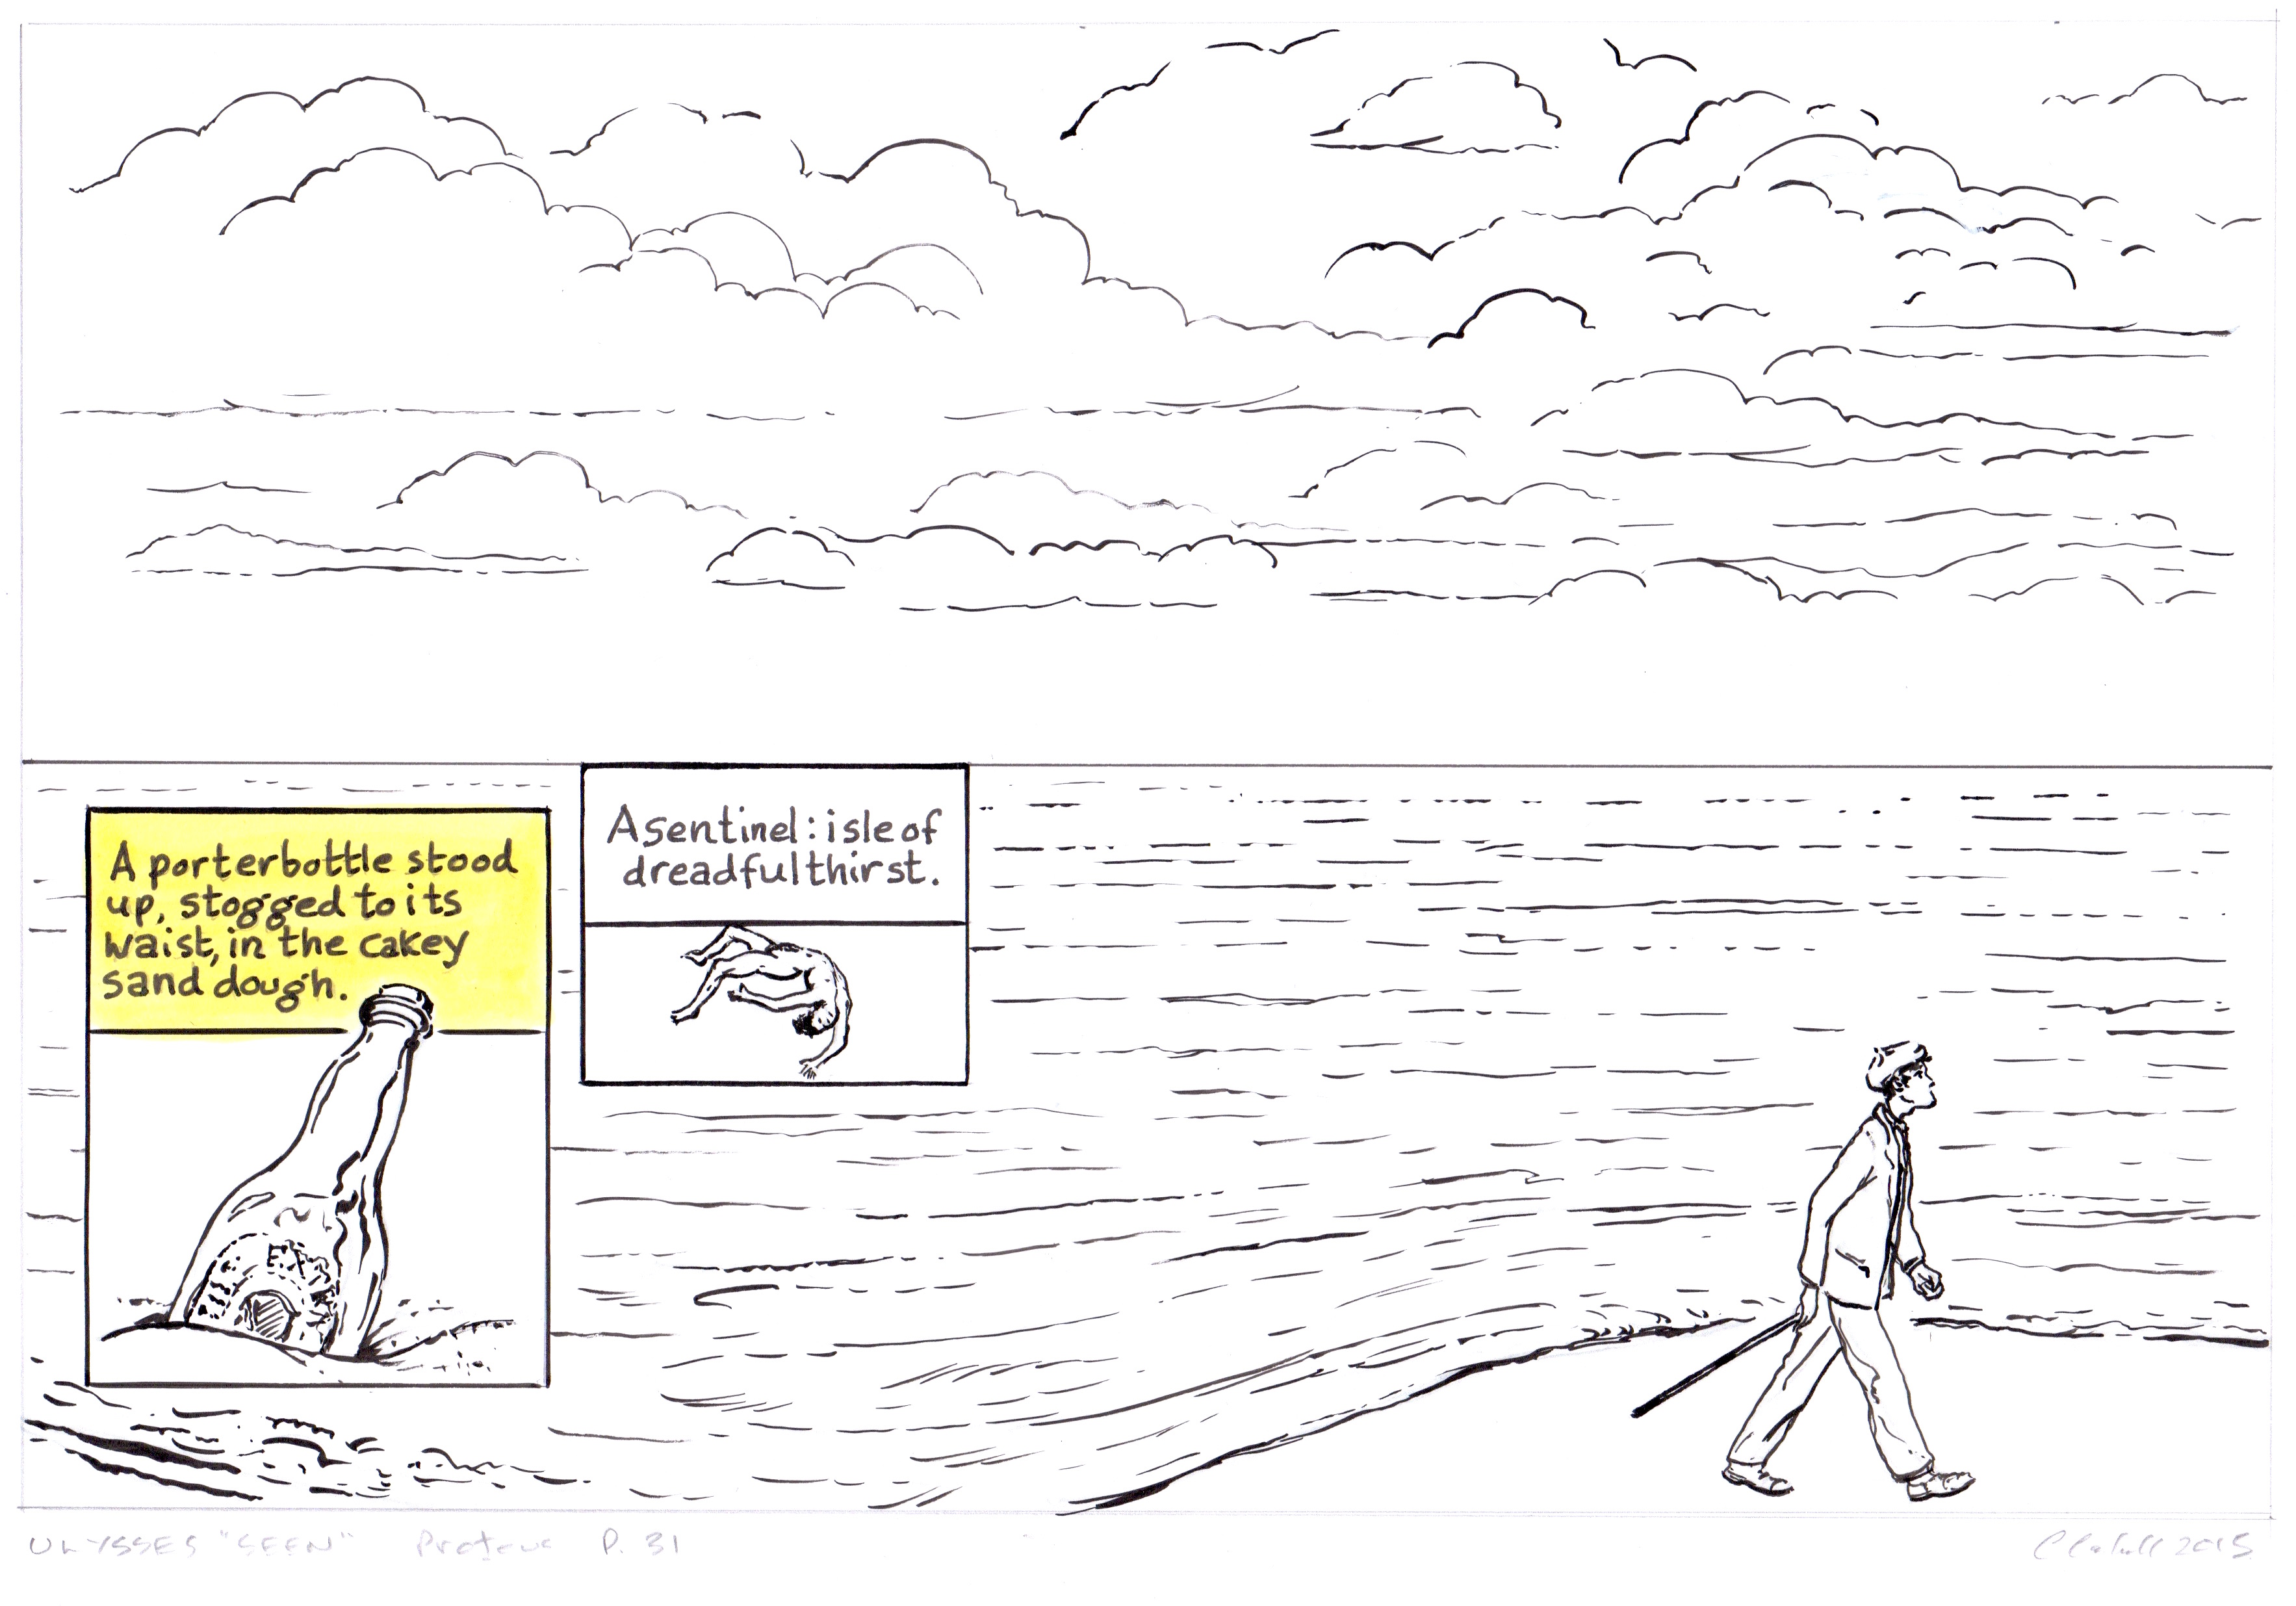 A porterbottle stood
up, stogged to its
waist, in the cakey
sand dough.
A sentinel: isle of
dreadful thirst.
ULYSSES "SEEN" Proteus P. 31
2015